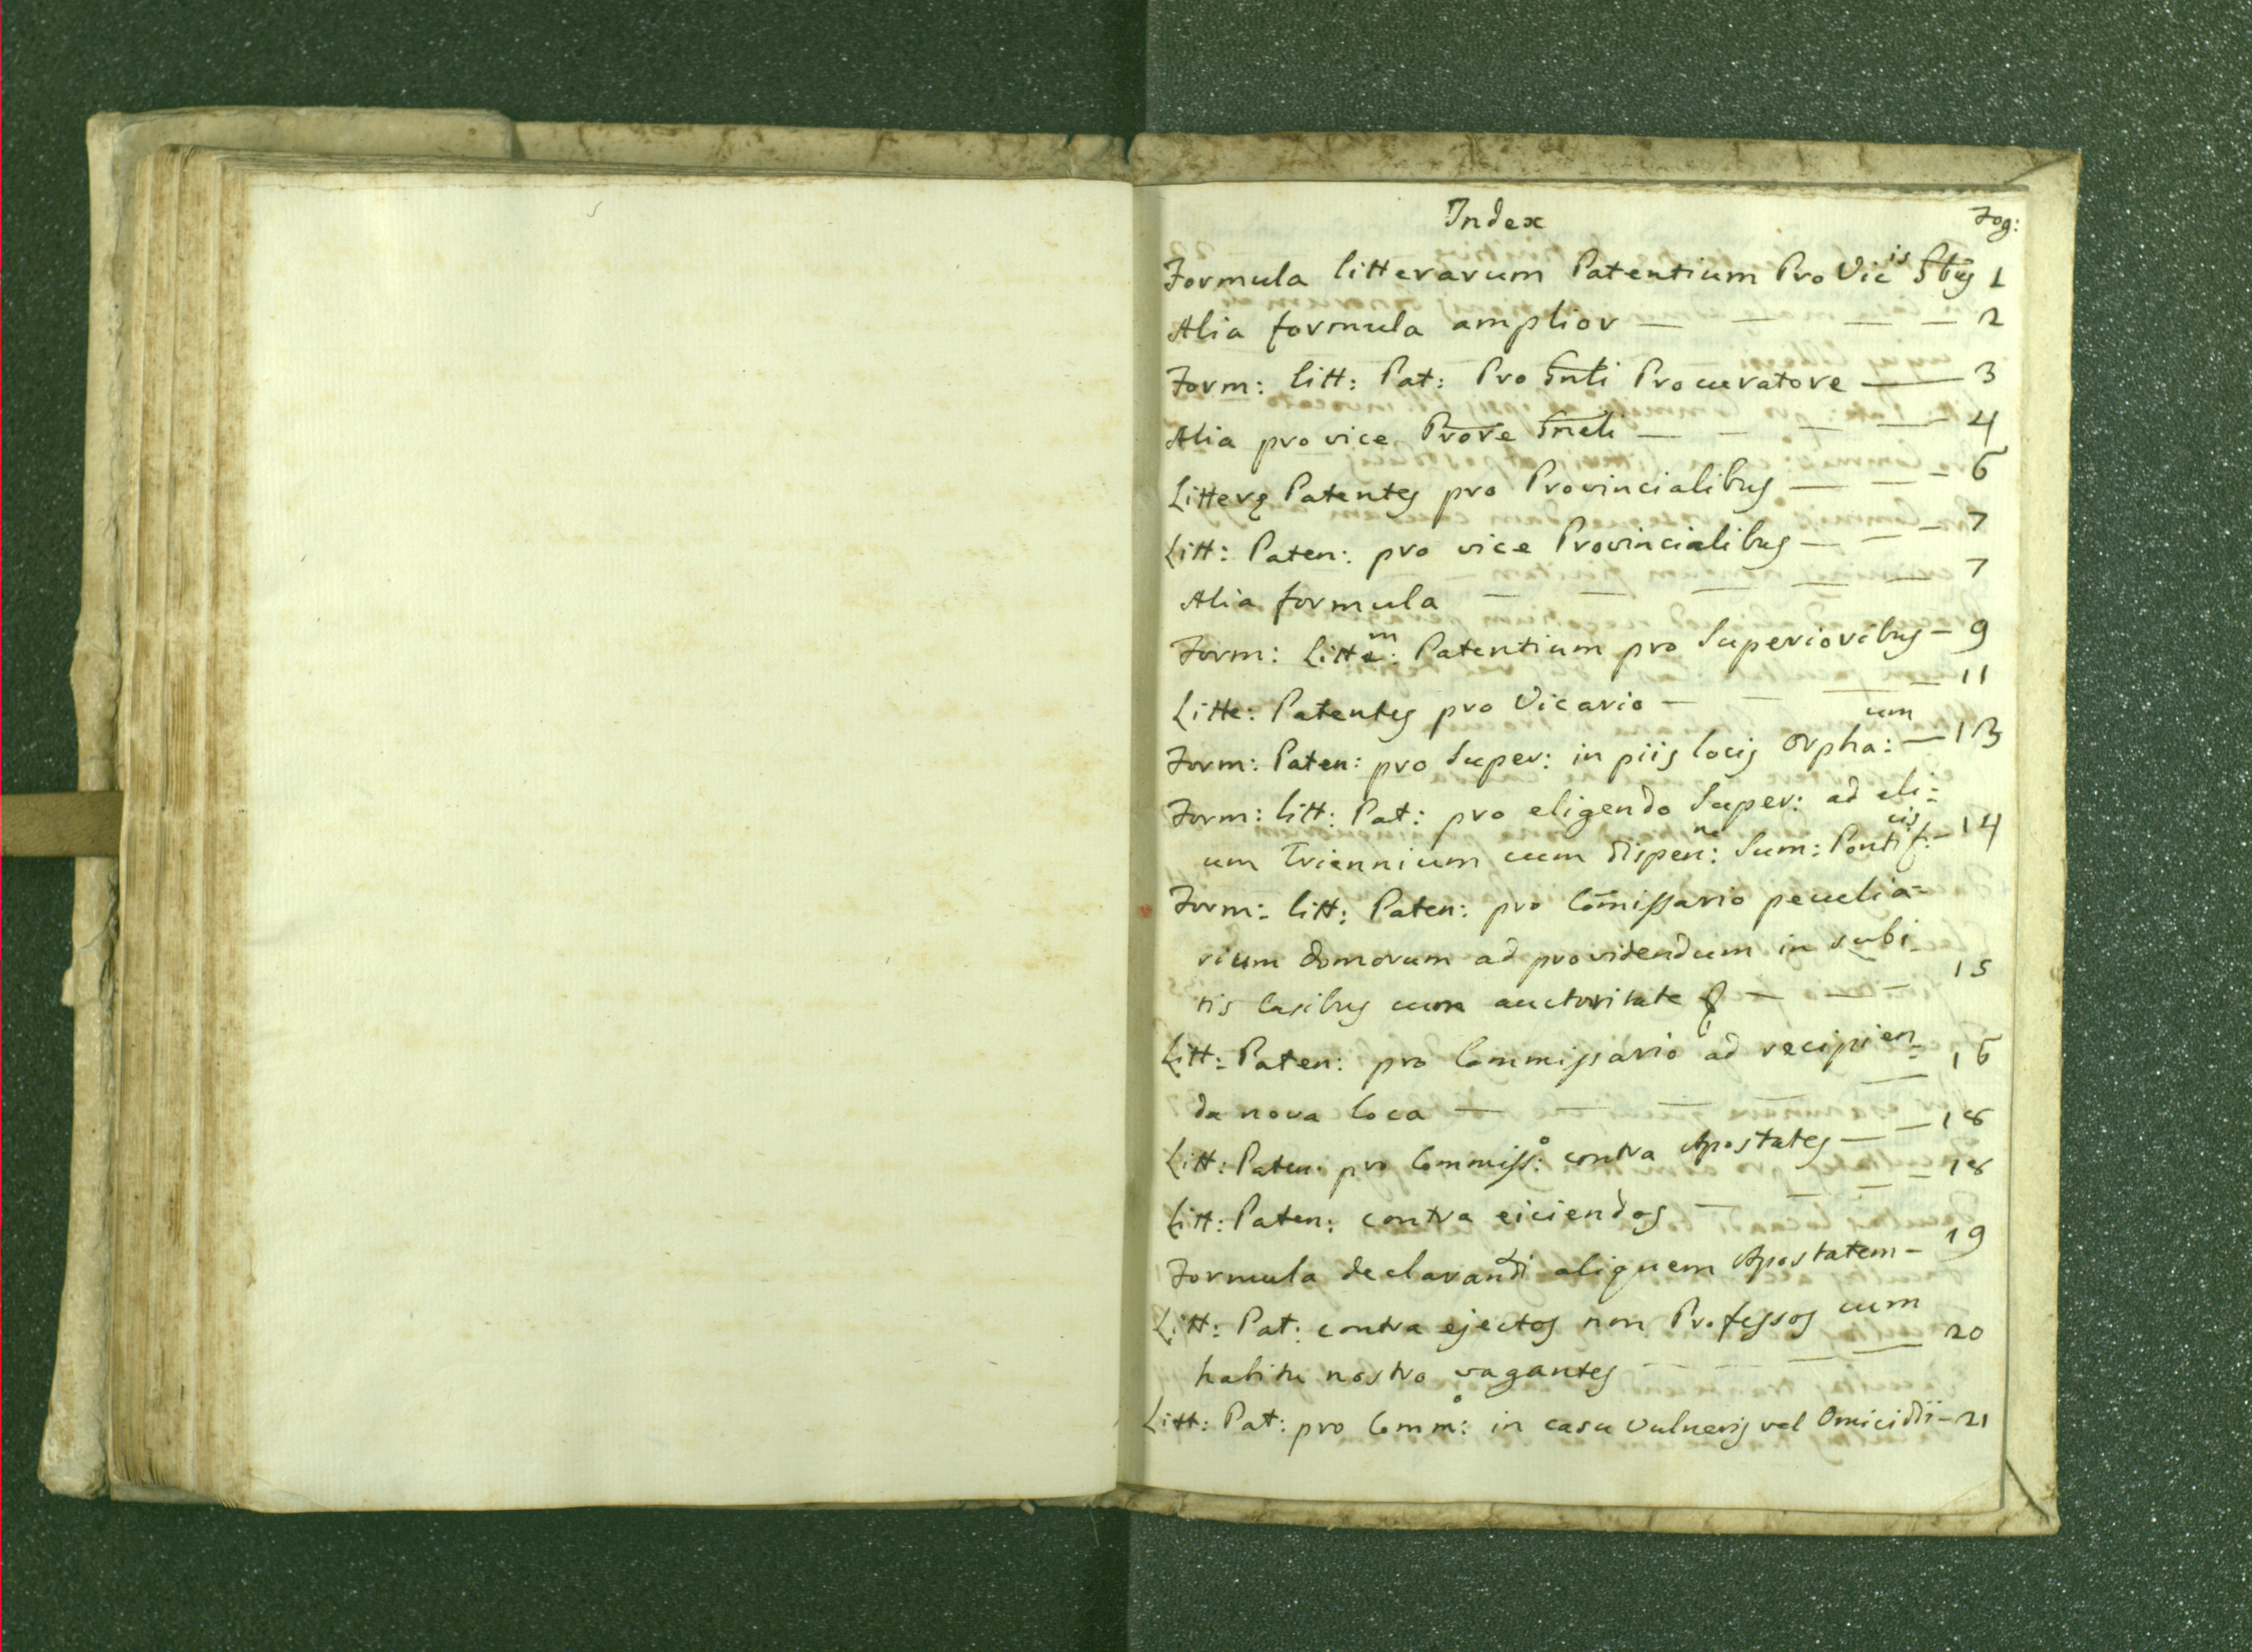 Index Fog:
Formula litterarum Patentium Pro Vic^is Gbus 1
Alia formula amplior — — — — 2
Form: litt: Pat: Pro Gnli Procuratore — 3
Alia pro vice Prore Gneli — — — — 4
Litterę Patentes pro Provincialibus — — — 6
Litt: Paten: pro vice Provincialibus — — — 7
Alia formula — — — — 7
Form: Litte^m: Patentium pro Superioribus — 9
Litte: Patentes pro Vicario — — — — 11
Form: Paten: pro Super: in piis locis Orpha:^um — 13
Form: litt: Pat: pro eligendo Super: ad ali=
um Triennium cum dispen:^ne Sum: Pontif:^cis — 14
Form: litt: Paten: pro Com̄issario peculia=
rium domorum ad providendum in subi-
tis Casibus cum auctoritate & — — — 15
Litt: Paten: pro Commissario ad recipien=
da nova loca — — — — — 16
Litt: Paten: pro Commiss:^o contra Apostates — — 18
Litt: Paten: contra eiciendos — — — — 18
Formula declarandi aliquem Apostatem — 19
Litt: Pat: contra ejectos non Professos cum
habitu nostro vagantes — — — — 20
Litt: Pat: pro Comm:^o in casu Vulneris vel Omicidii — 21